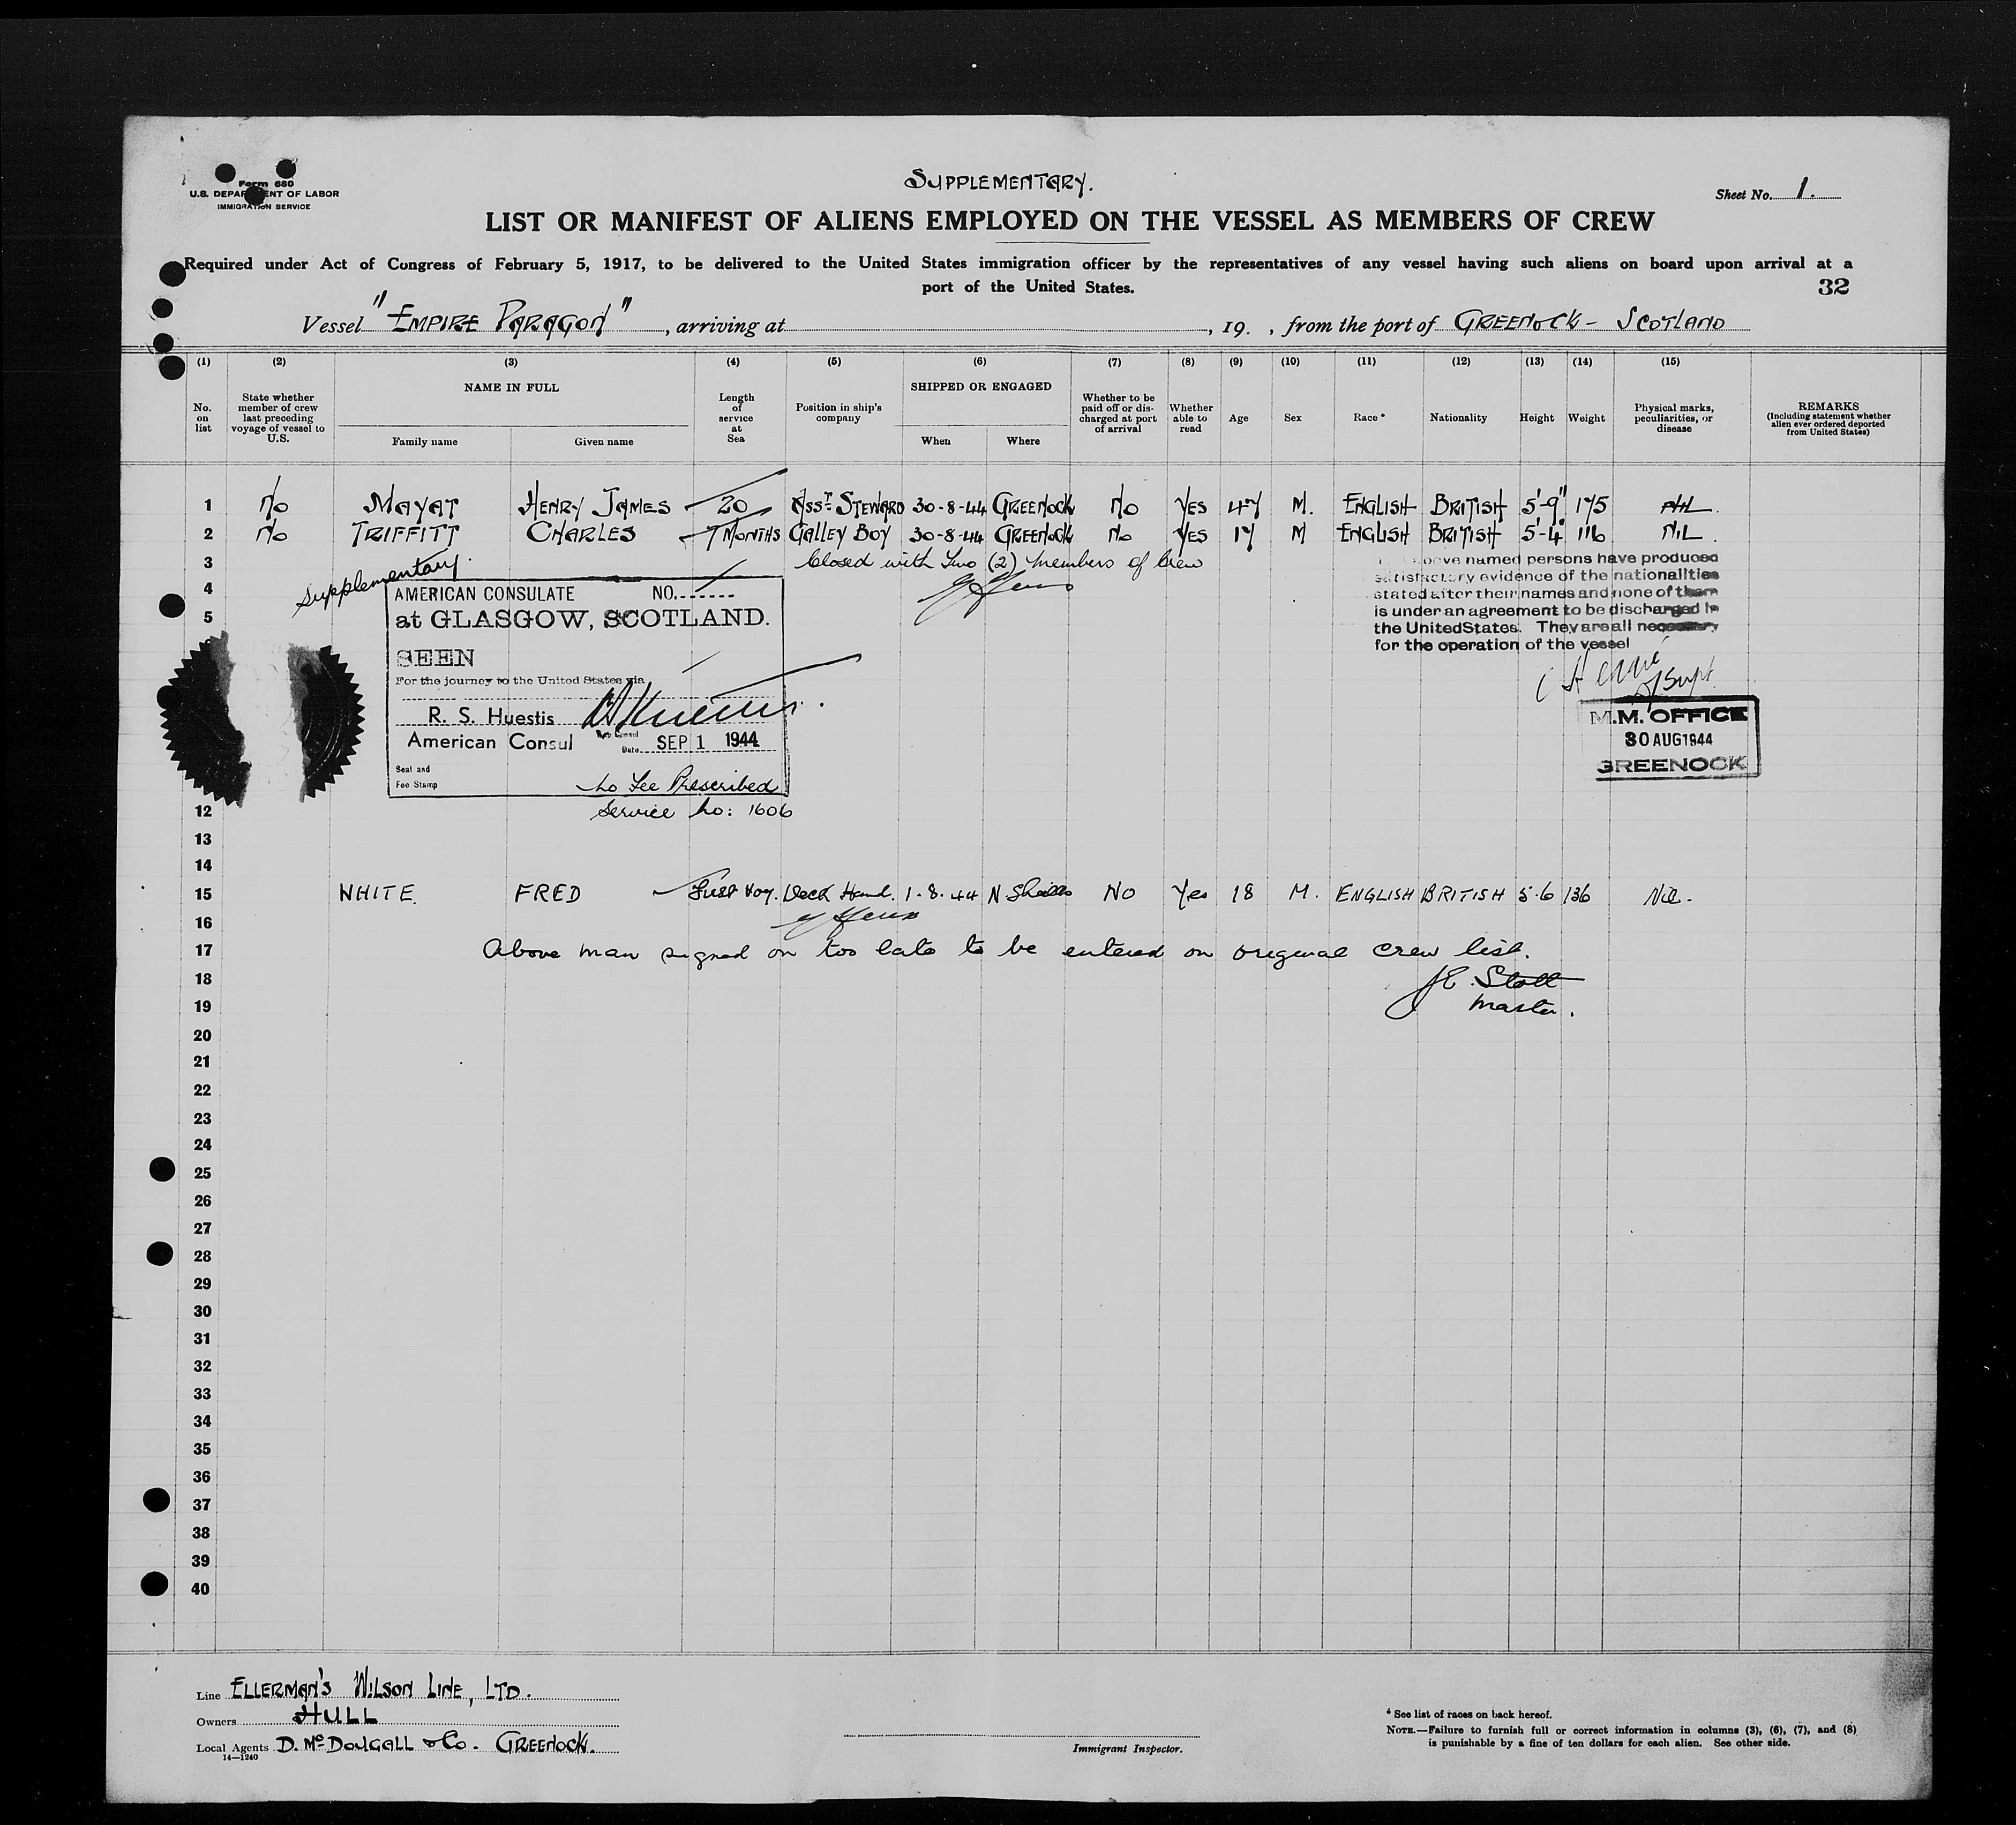 Form 680
U.S. DEPARTMENT OF LABOR
IMMIGRATION SERVICE
SUPPLEMENTARY.
Sheet No. 1.
LIST OR MANIFEST OF ALIENS EMPLOYED ON THE VESSEL AS MEMBERS OF CREW
Required under Act of Congress of February 5, 1917, to be delivered to the United States immigration officer by the representatives of any vessel having such aliens on board upon arrival at a
port of the United States.
32
Vessel "EMPIRE PARAGON", arriving at , 19 , from the port of GREENOCK - SCOTLAND
(1) (2) (3) (4) (5) (6) (7) (8) (9) (10) (11) (12) (13) (14) (15)
No. on list
State whether member of crew last preceding voyage of vessel to U.S.
NAME IN FULL
Family name
Given name
Length of service at Sea
Position in ship's company
SHIPPED OR ENGAGED
When
Where
Whether to be paid off or discharged at port of arrival
Whether able to read
Age
Sex
Race *
Nationality
Height
Weight
Physical marks, peculiarities, or disease
REMARKS
(Including statement whether alien ever ordered deported from United States)
1 No MAYAT HENRY JAMES 20 ASST. STEWARD 30-8-44 GREENOCK No YES 47 M. ENGLISH BRITISH 5'-9" 175 NIL.
2 No TRIFFITT CHARLES 7 MONTHS GALLEY BOY 30-8-44 GREENOCK No YES 17 M ENGLISH BRITISH 5'-4" 116 NIL.
3 Closed with Two (2) members of Crew
4
5
Supplementary
AMERICAN CONSULATE NO.
at GLASGOW, SCOTLAND.
SEEN
For the journey to the United States via
R. S. Huestis
American Consul
Date SEP 1 1944
Seal and
Fee Stamp
No Fee Prescribed
Service No: 1606
above named persons have produced
satisfactory evidence of the nationalities
stated after their names and none of them
is under an agreement to be discharged in
the United States. They are all necessary
for the operation of the vessel
M.M. OFFICE
30 AUG 1944
GREENOCK
12
13
14
15 WHITE. FRED First Voy. Deck Hand. 1-8-44 N. Shields NO Yes 18 M. ENGLISH BRITISH 5-6 136 Nil.
16
17 Above man signed on too late to be entered on original crew list.
18 J.E. Stott
19 Master.
20
21
22
23
24
25
26
27
28
29
30
31
32
33
34
35
36
37
38
39
40
Line ELLERMAN'S WILSON LINE, LTD.
Owners HULL
Local Agents D. McDOUGALL & Co. GREENOCK.
14—1240
Immigrant Inspector.
* See list of races on back hereof.
NOTE.—Failure to furnish full or correct information in columns (3), (6), (7), and (8)
is punishable by a fine of ten dollars for each alien. See other side.